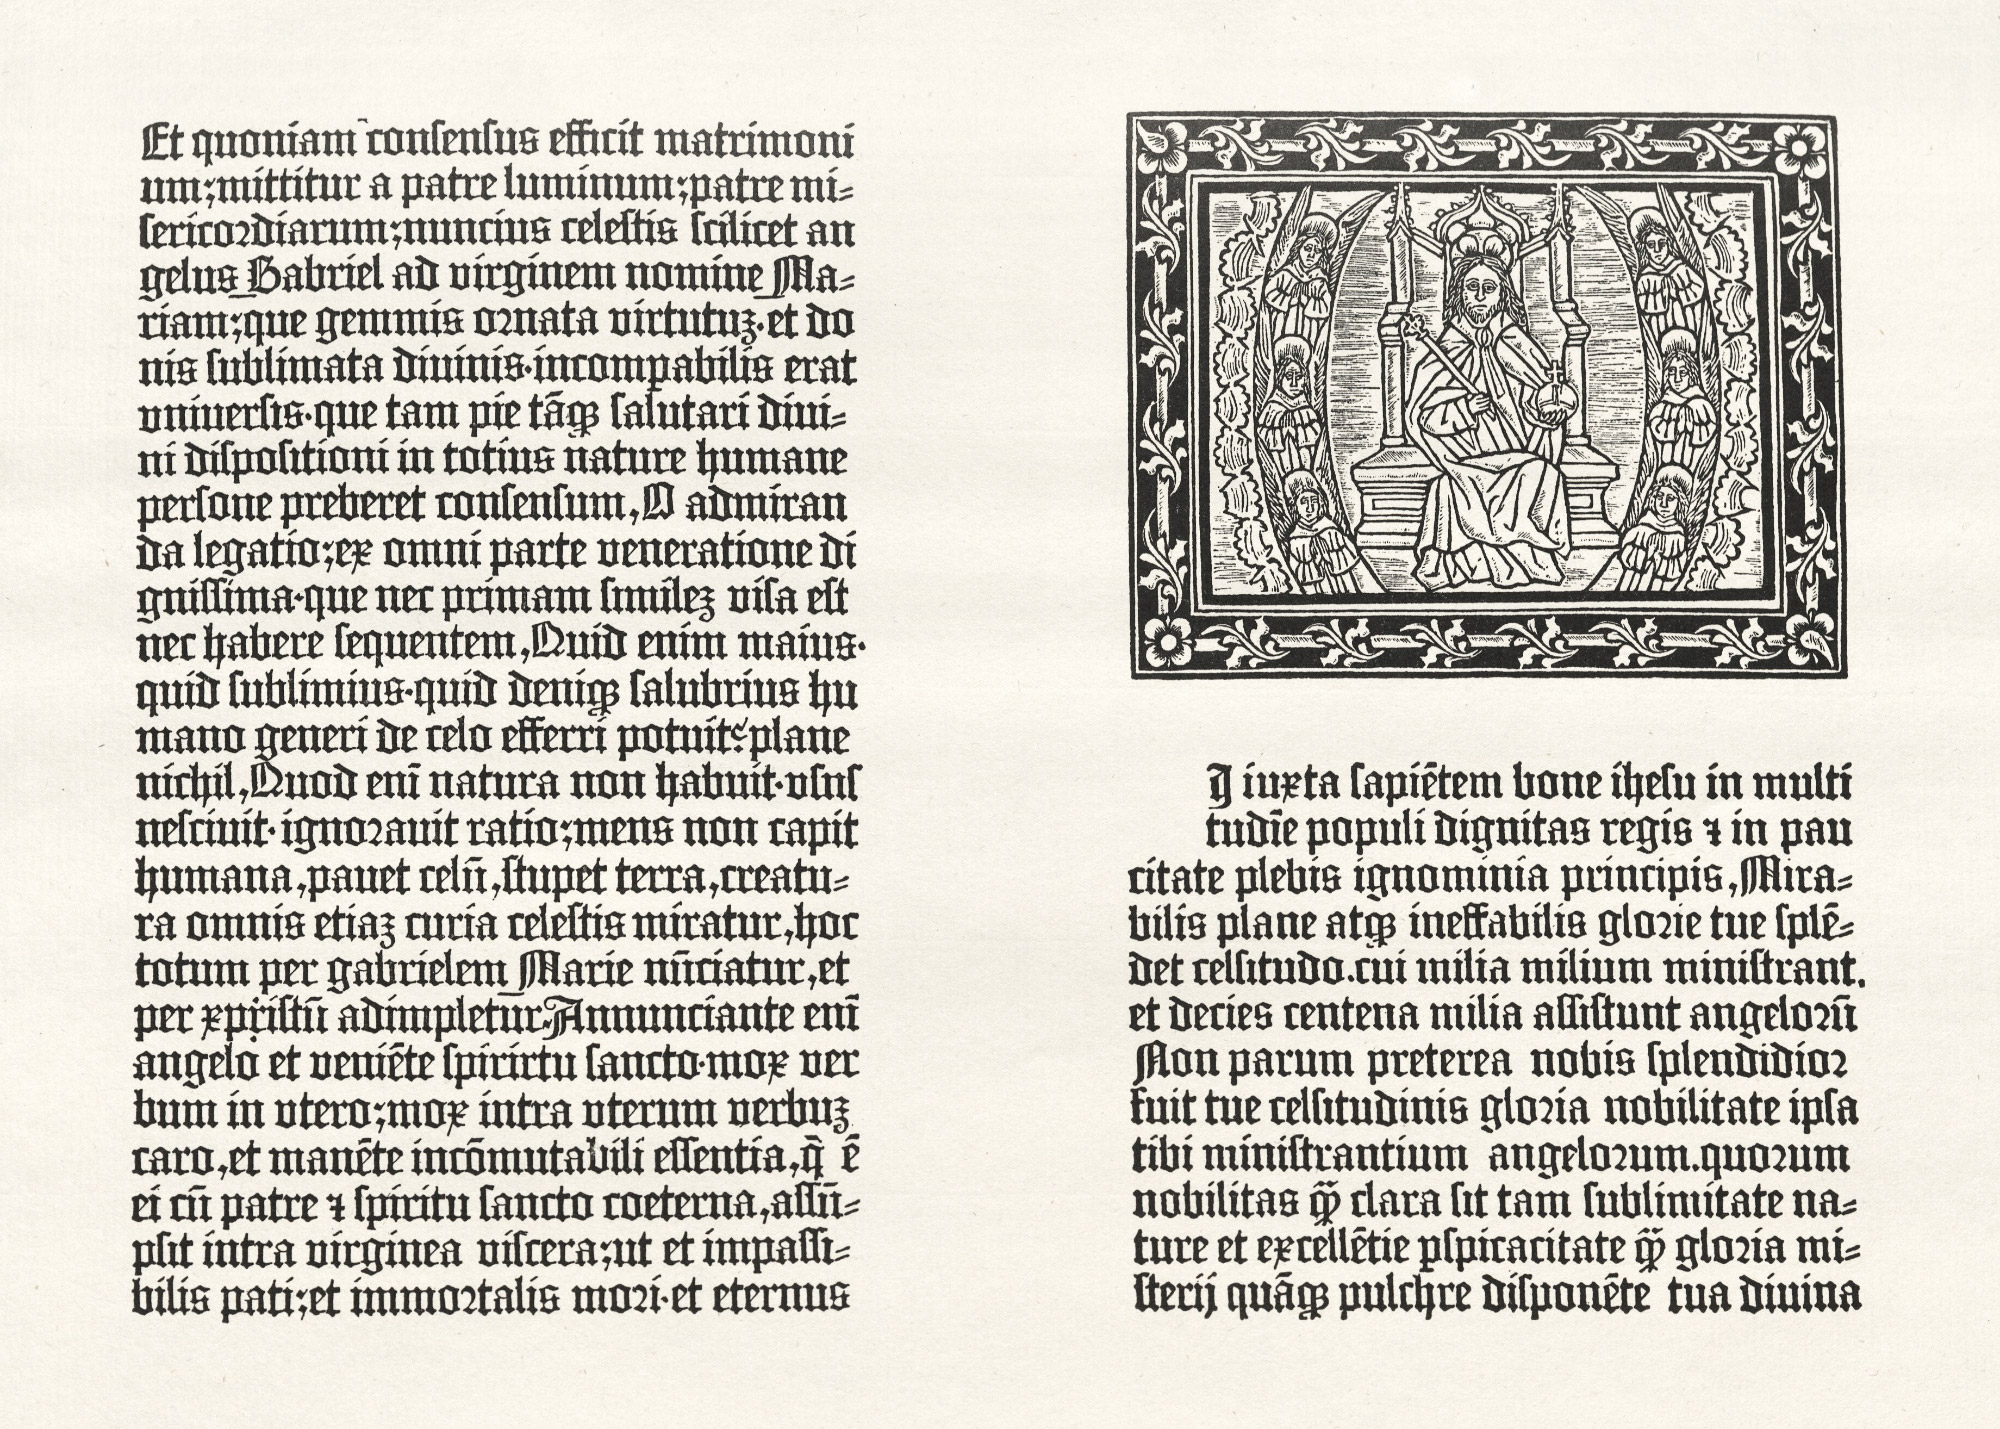 Et quoniam consensus efficit matrimoni
um;mittitur a patre luminum;patre mi=
sericordiarum;nuncius celestis scilicet an
gelus Gabriel ad virginem nomine Ma=
riam;que gemmis ornata virtutuꝫ·et do
nis sublimata diuinis·incomꝑabilis erat
vniuersis·que tam pie tāqꝫ salutari diui=
ni dispositioni in totius nature humane
persone preberet consensum, O admiran
da legatio;ex omni parte veneratione di
gnissima·que nec primam simileꝫ visa est
nec habere sequentem, Quid enim maius·
quid sublimius·quid deniqꝫ salubrius hu
mano generi de celo efferri potuit?plane
nichil, Quod enī natura non habuit·vsus
nesciuit·ignorauit ratio;mens non capit
humana,pauet celū,stupet terra,creatu=
ra omnis etiaꝫ curia celestis miratur,hoc
totum per gabrielem Marie nūciatur,et
per xpristū adimpletur·Annunciante enī
angelo et veniēte spirirtu sancto·mox ver
bum in vtero;mox intra vterum verbuꝫ
caro,et manēte incōmutabili essentia,q̄ ē
ei cū patre ⁊ spiritu sancto coeterna,assū=
psit intra virginea viscera;ut et impassi=
bilis pati;et immortalis mori·et eternus
I iuxta sapiētem bone ihesu in multi
tudīe populi dignitas regis ⁊ in pau
citate plebis ignominia principis, Mira=
bilis plane atqꝫ ineffabilis glorie tue splē=
det celsitudo.cui milia milium ministrant.
et decies centena milia assistunt angelorū
Non parum preterea nobis splendidior
fuit tue celsitudinis gloria nobilitate ipsa
tibi ministrantium angelorum.quorum
nobilitas qͣꝫ clara sit tam sublimitate na=
ture et excellētie ꝑspicacitate qͣꝫ gloria mi=
sterij quāqꝫ pulchre disponēte tua diuina